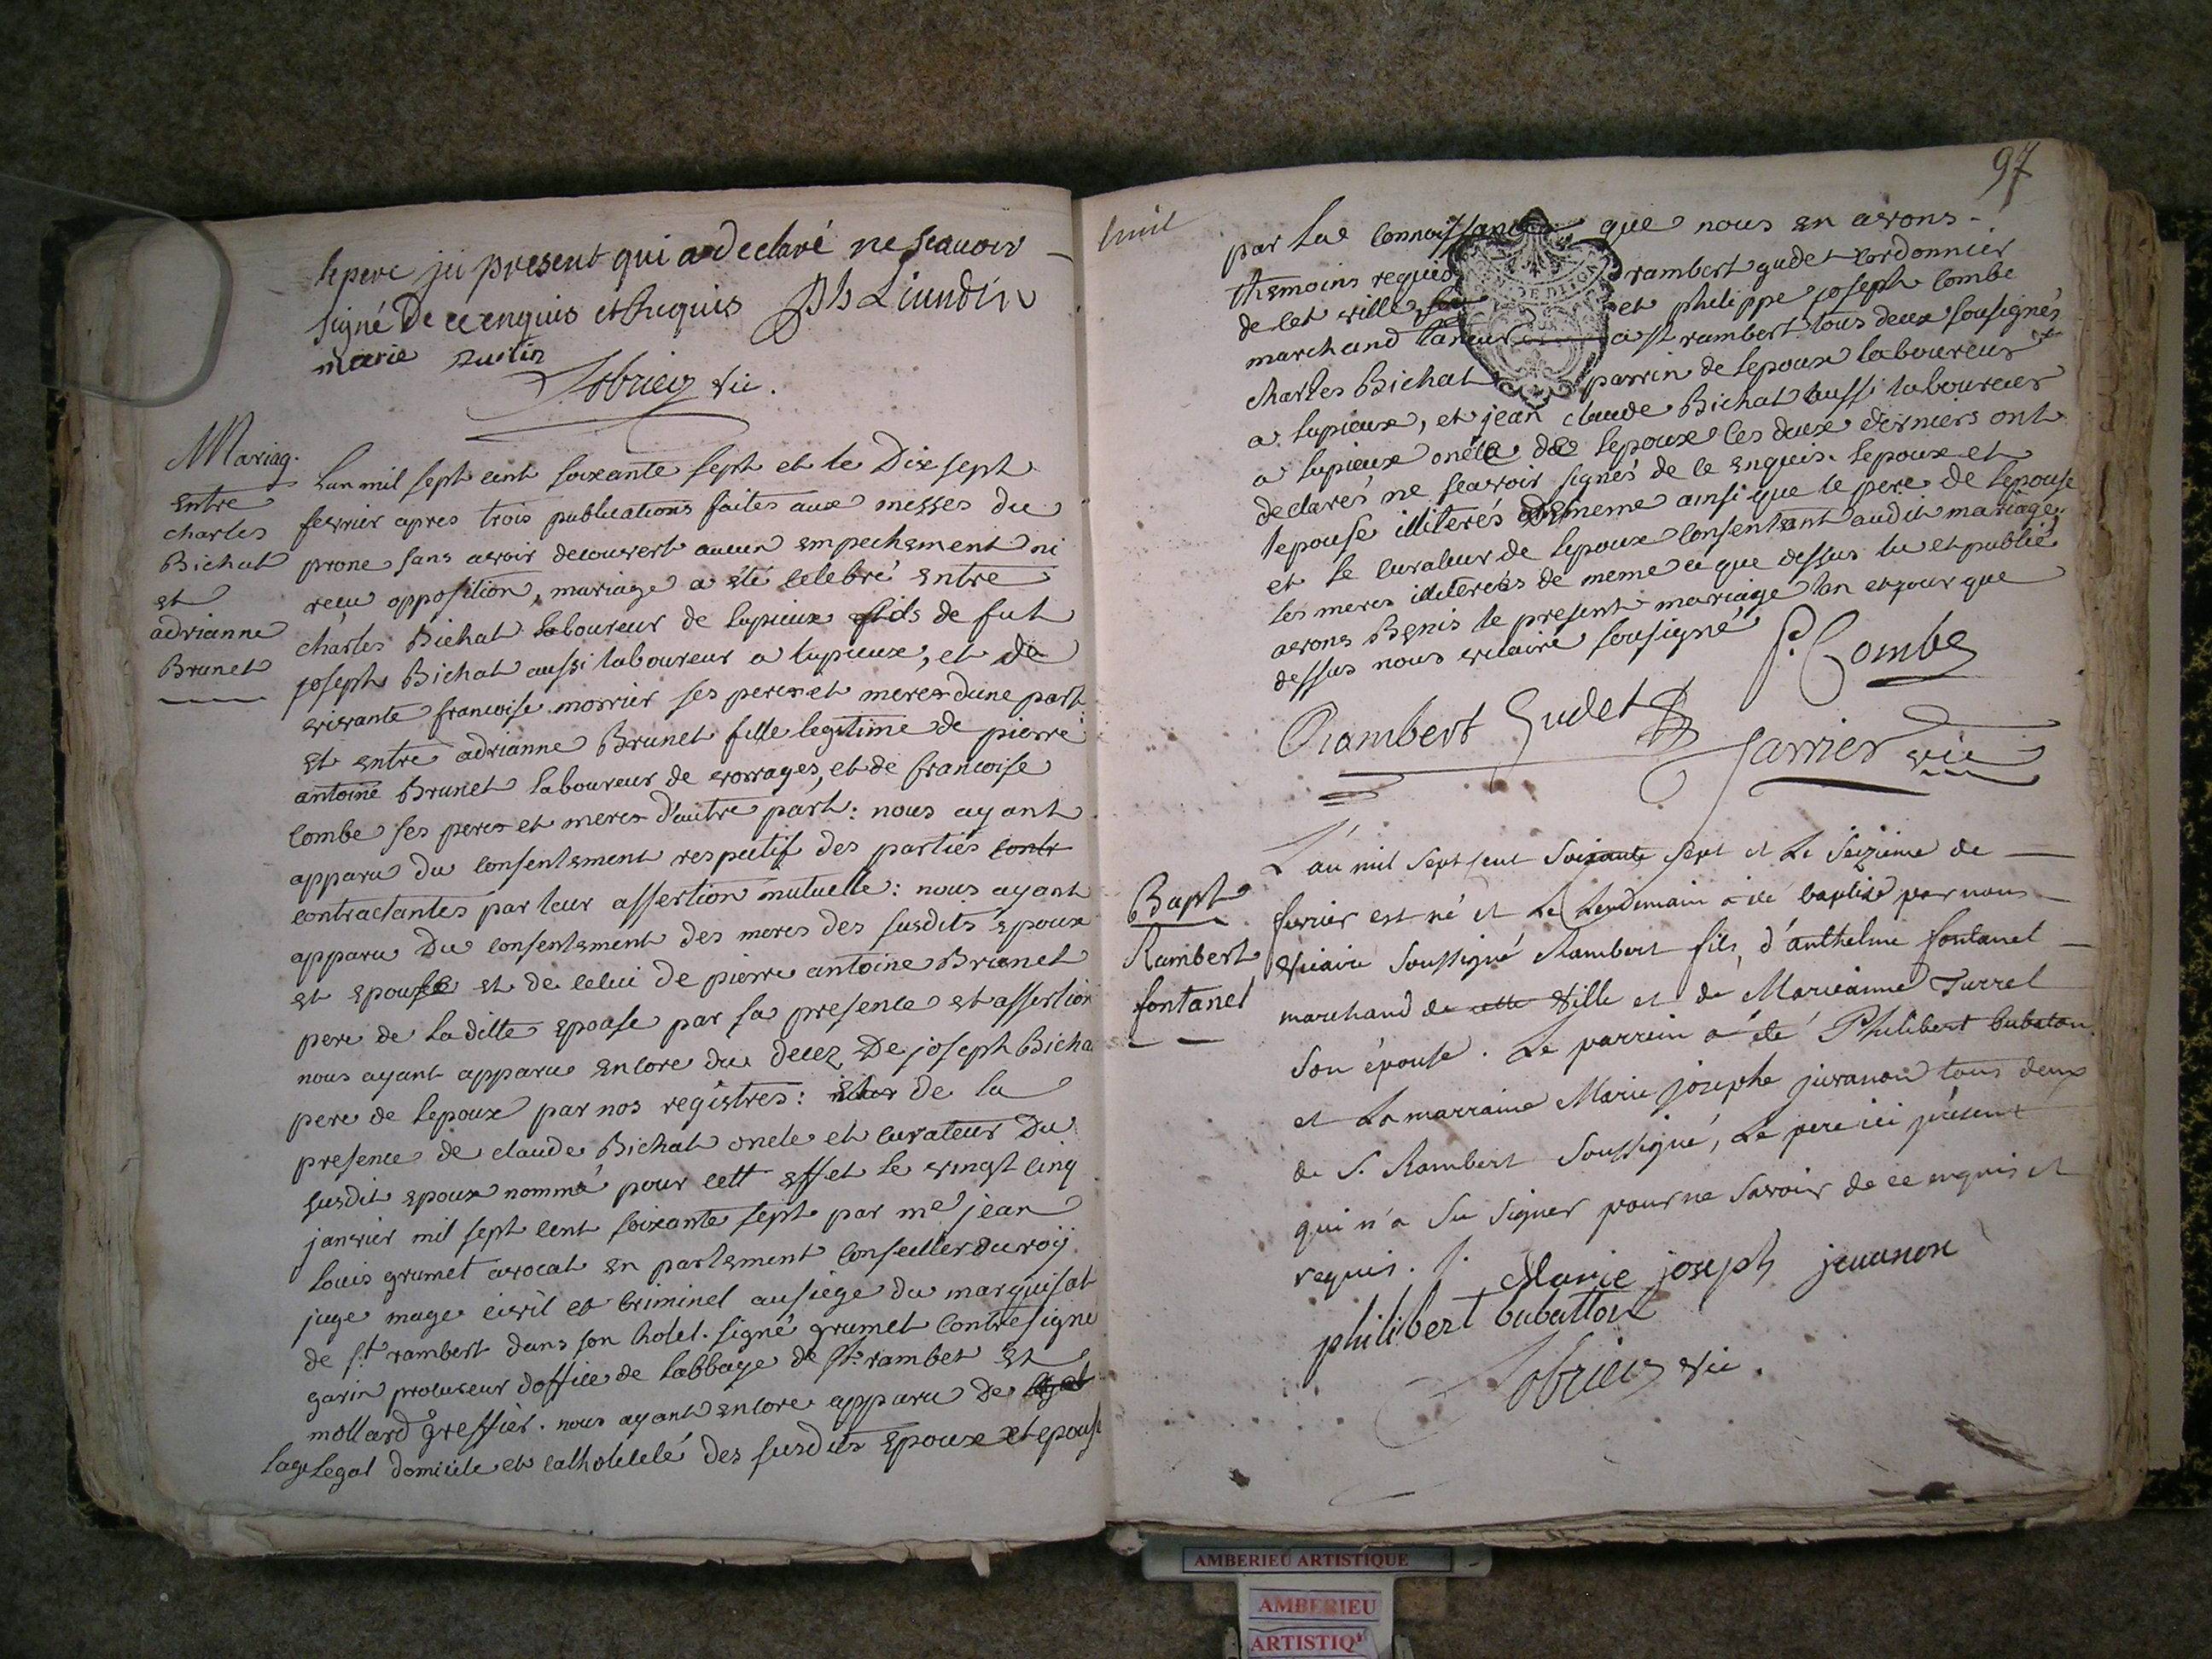 le pere ici present qui a declaré ne scauoir
signé De ce enquis et Requis
marie
vic.
Mariag.
Entre
charles
Bichat
et
adrianne
Brunet
Lan mil sept cent soixante sept et le Dix sept
fevrier apres trois publications faites aux messes du
prone sans avoir decouvert aucun empechement ni
recu opposition, mariage a été celebré entre
charles Bichat laboureur de lupieux fils de fut
joseph Bichat aussi laboureur a lupieux, et de
vivante francoise morrier ses peres et meres dune part
Et entre adrianne Brunet fille legitime de pierre
antoine Brunet laboureur de vorages, et de francoise
Combe ses peres et meres d'autre part : nous ayant
apparu du consentement respectif des parties contr
contractantes par leur assertion mutuelle : nous ayant
apparu Du consentement des meres des susdits epoux
et epouse et de celui de pierre antoine Brunet
pere de la ditte epouse par sa presence et assertion
nous ayant apparu encore du decez De joseph Bicha
pere de lepoux par nos registres : de la
presence de claude Bichat oncle et curateur Du
susdit epoux nommé pour cett effet le vingt cinq
janvier mil sept cent soixante sept par me jean
Louis grumet avocat en parlement Conseiller du roy
juge mage civil et criminel au siege du marquisat
de st rambert dans son hotel. signé grumet contresigné
garin procureur doffice de labbaye de st rambet et
mollard greffier. nous ayant encore apparu de legal
lage Legal domicile et catholicité des susdits Epoux et epouse
97
par lae connoissance que nous en avons
themoins requis rambert gudet cordonnier
de cet ville et philippe joseph Combe
marchand taneur a st rambert tous deux sousignés
charles Bichat parrin de lepoux laboureur
a lupieux, et jean claude Bichat aussi laboureur
a lupieux oncle de lepoux les deux derniers ont
declarés ne scavoir signés de ce enquis. lepoux et
lepouse illiterés de meme ainsi que le pere de lepouse
et le curateur de lepoux consentant audit mariage,
les meres illiterés de meme ce que dessus lu et publié
avons Benis le present mariage lan et jour que
dessus nous vicaire sousigné P. Combe
Rambert Gudet
Jarrier vic
Bapt
Rambert
fontanel
L'an mil sept cent soixante sept et le seizieme de
fevrier est né et le lendemain a été baptisé par nous
vicaire soussigné Rambert fils, d'anthelme fontanel
marchand de cette ville et de Marieanne Turrel
son épouse. Le parrein a été Philibert bubaton
et la marraine Marie josephe juvanon tous deux
de St. Rambert soussigné, Le pere ici présent
qui n'a su signer pour ne savoir de ce enquis et
requis. Marie joseph jeuanon
philibert bubatton
vic.
AMBERIEU ARTISTIQUE
AMBERIEU
ARTISTIQ